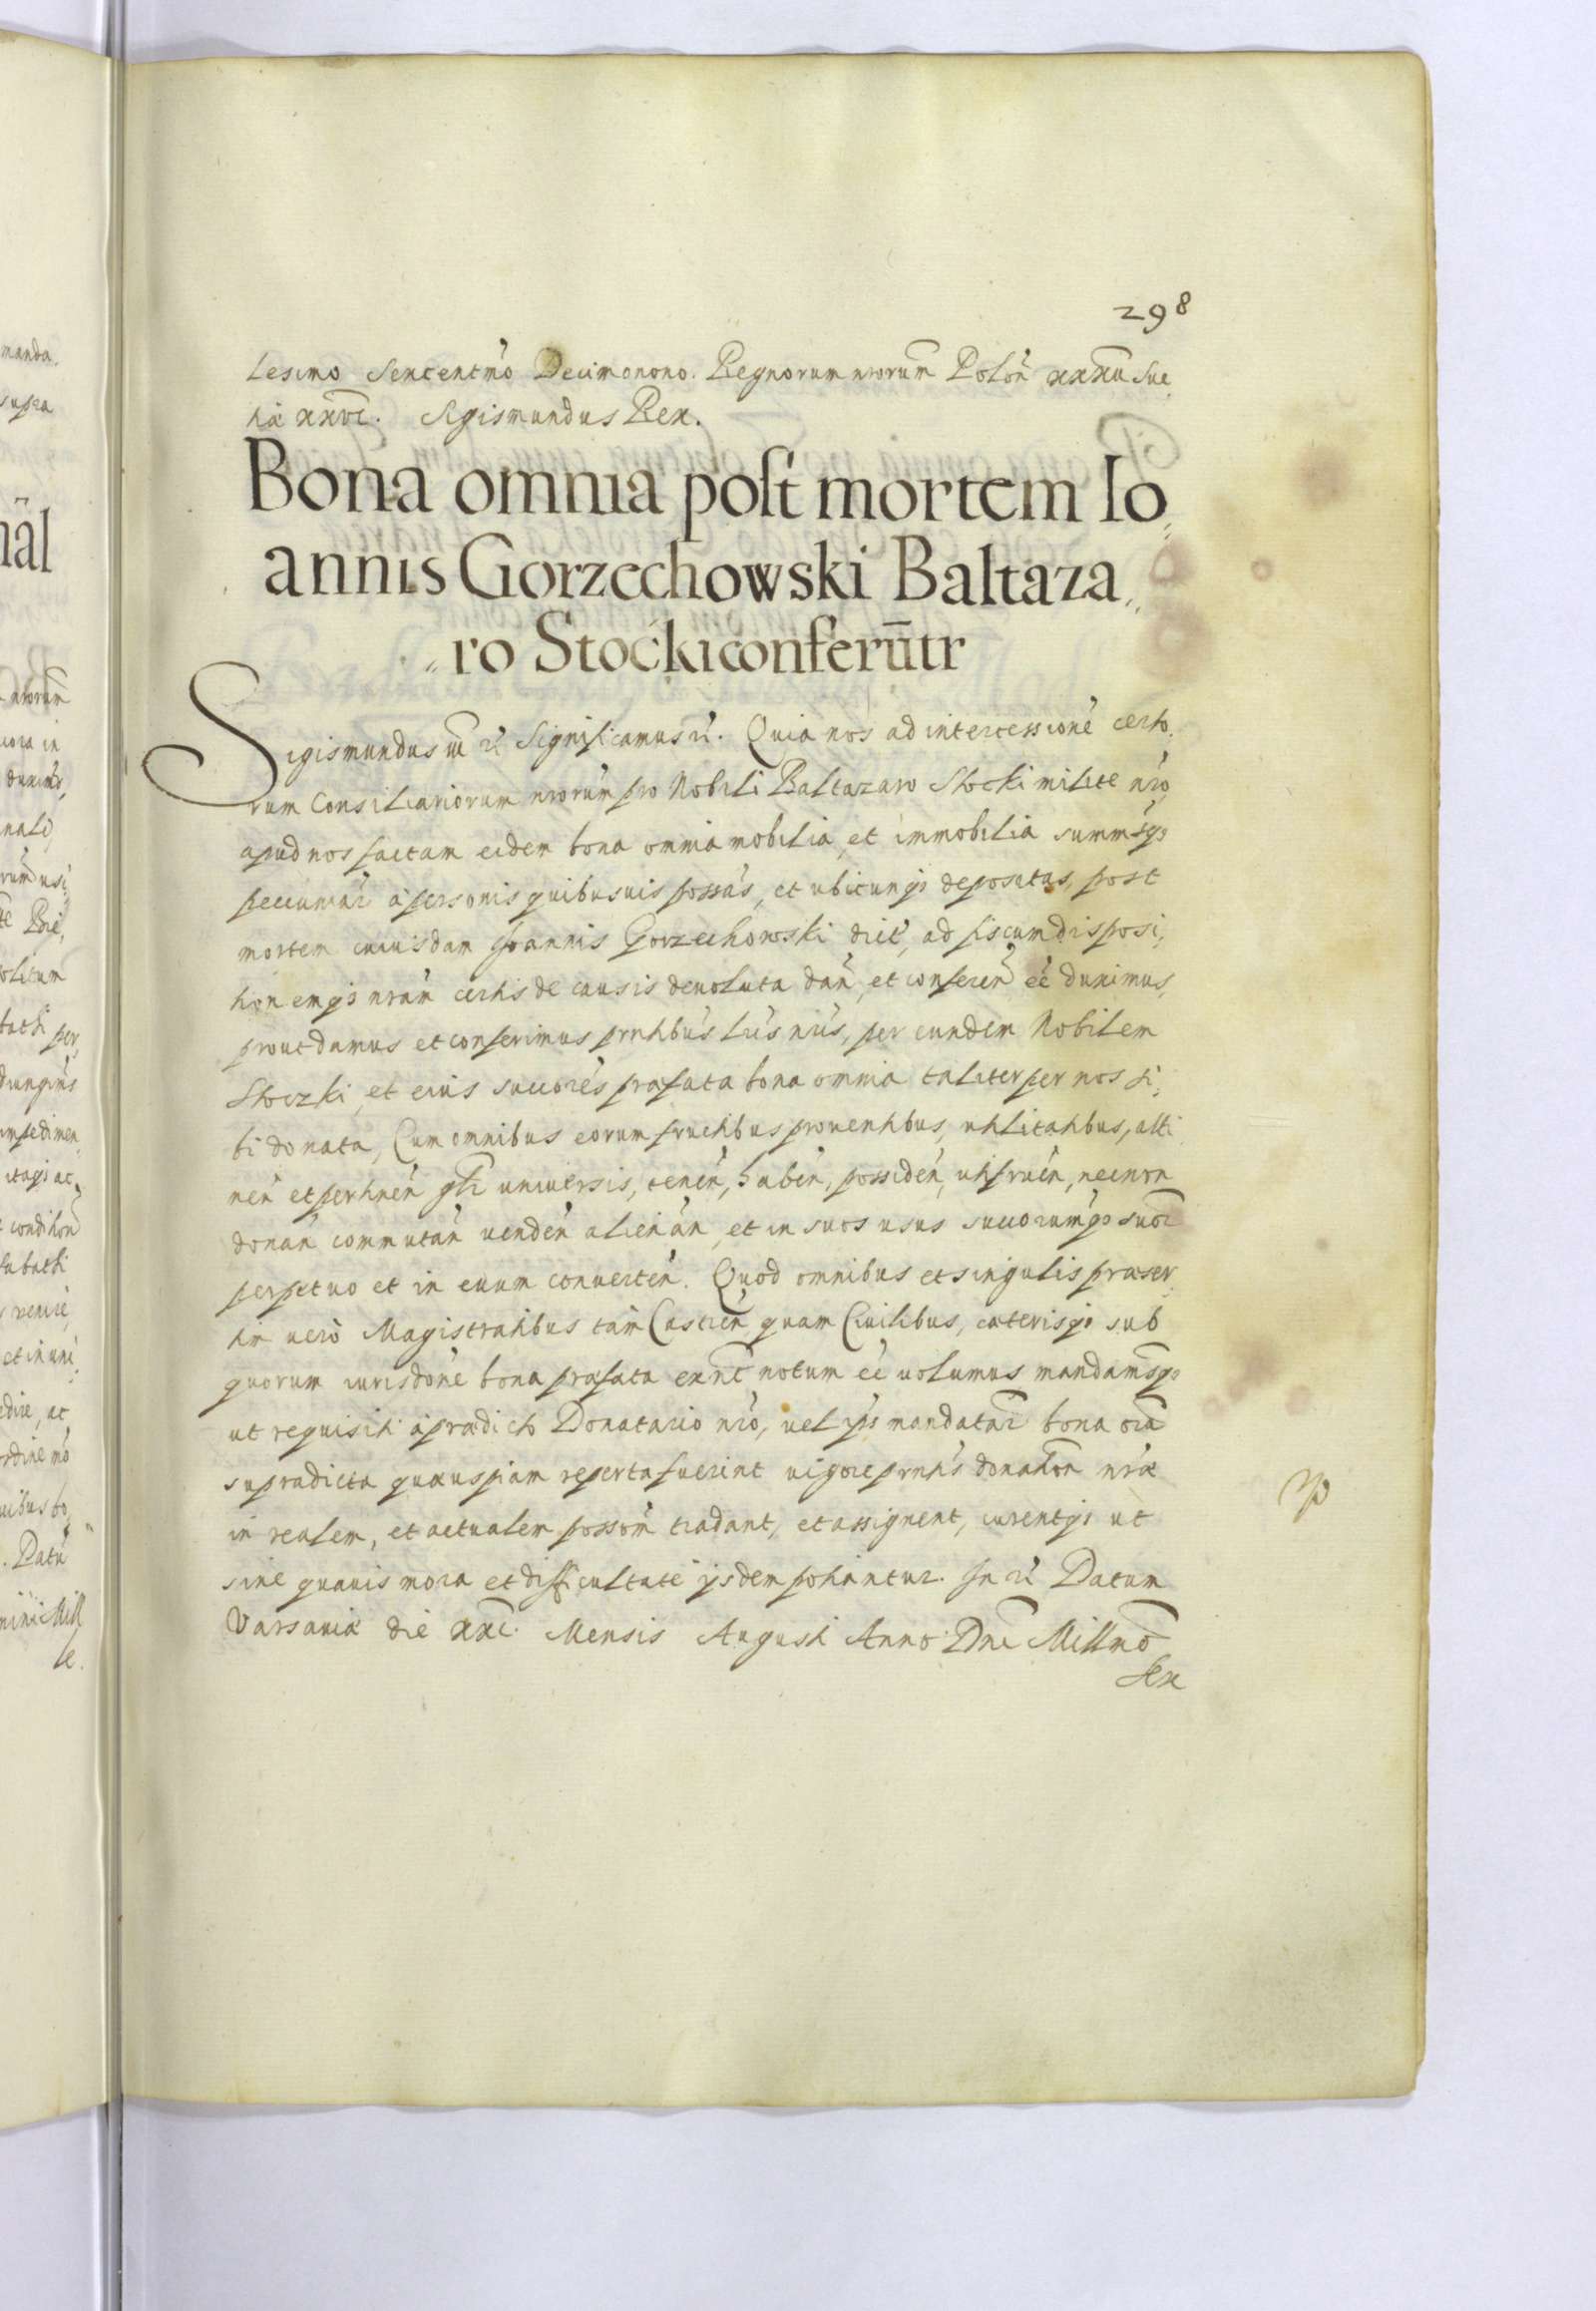 298
lesimo Sexcentmo Decimonono. Regnorum nrorum Polon xxxii Sue,
tiæ xxvi. Sigismundus Rex.
Bona omnia post mortem Io,,
annis Gorzechowski Baltaza,,
,,ro Stocki conferūtr
Sigismundus iii etc Significamus etc. Quia nos ad intercessionē certo,
rum Consiliariorum nrorum pro Nobili Baltazaro Stocki milite nro,
apud nos factam eidem bona omnia mobilia, et immobilia summasq3
pecuniar à personis quibusuis possas, et ubicunq3 depositas, post
mortem cuiusdam Joannis Gorzechowski dict, ad fiscum disposi,
tionemq3 nram certis de causis deuoluta dan, et conferen eē duximus,
prout damus et conferimus prntibus lris nris, per eundem Nobilem
Stoczki, et eius succores præfata bona omnia taliter per nos si,
bi donata, Cum omnibus eorum fructibus prouentibus, utilitatibus, atti,
nen et pertinen gñr uniuersis, tenen, haben, possiden, utifruen, necnon
donan commutan uenden alienan, et in suos usus succorumq3 suor
perpetuo et in euum conuerten. Quod omnibus et singulis præser,
tim uero Magistratibus tam Castren quam Ciuilibus, cæterisq3 sub
quorum iurisdone bona præfata exnt notum eē uolumus mandamusq3
ut requisiti à prædicto Donatario nro, uel ips mandatar bona oīa
supradicta quæuspiam reperta fuerint uigore prntis donation nræ
in realem, et actualem possom tradant, et assignent, curentq3 ut
sine quauis mora et difficultate ijsdem potiantur. In etc Datum
Varsauiæ die xxi. Mensis Augusti Anno Dni Millmo
Sex